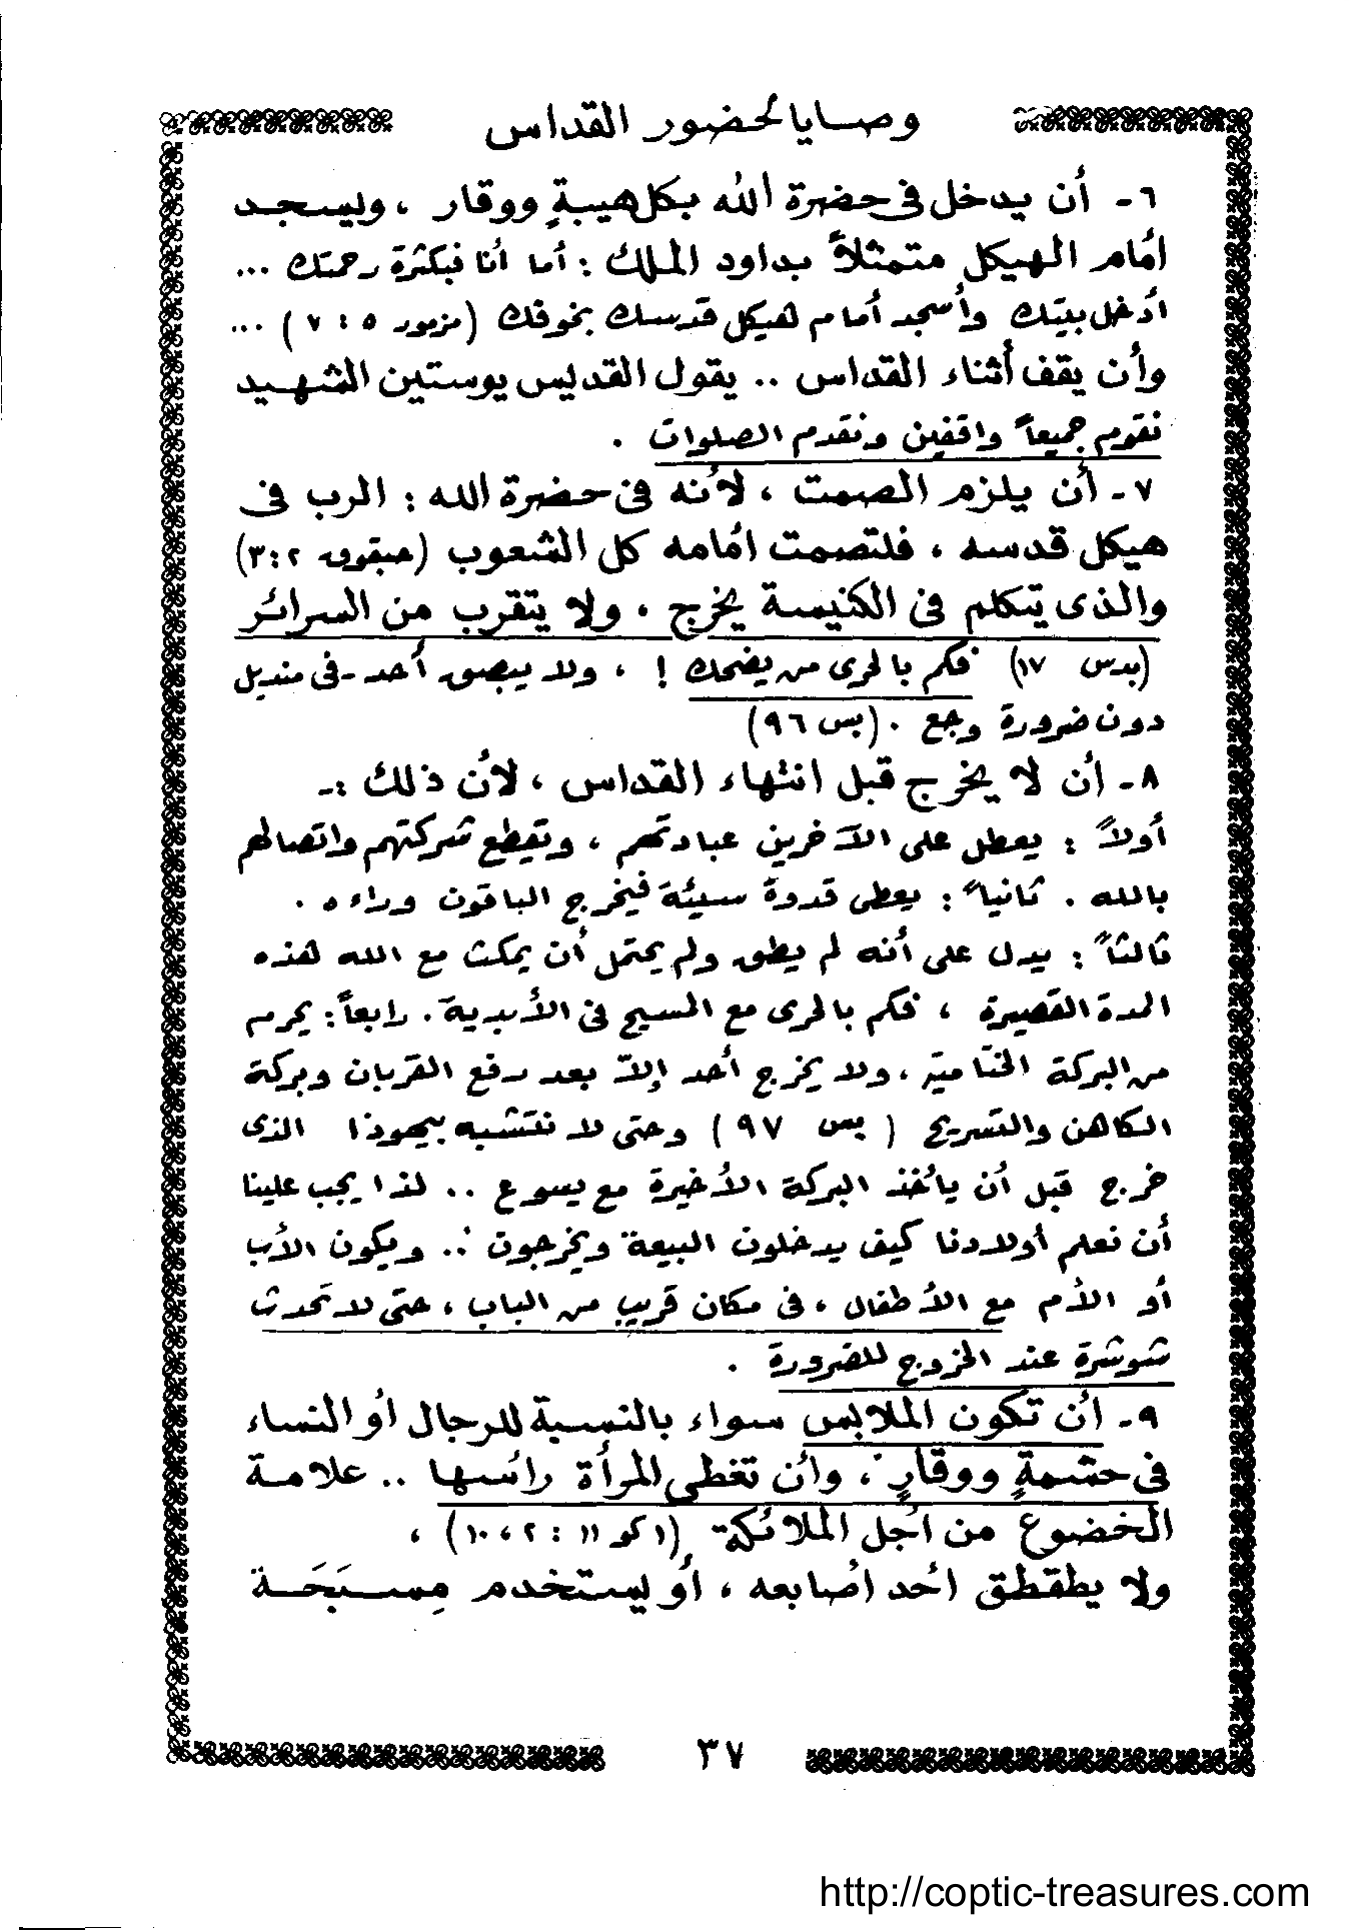 وصايا لحضور القداس
٦ـ أن يدخل فى حضرة الله بكل هيبةٍ ووقار ، وليسجد
أمام الهيكل متمثلاً بداود الملك : أما أنا فبكثرة رحمتك ...
أدخل بيتك وأسجد أمام هيكل قدسك بخوفك (مزمور ٥ : ٧ ) ...
وأن يقف أثناء القداس .. يقول القديس يوستين الشهيد
نقوم جميعاً واقفين ونقدم الصلوات .
٧ـ أن يلزم الصمت ، لأنه فى حضرة الله : الرب فى
هيكل قدسه ، فلتصمت أمامه كل الشعوب (حبقوق ٢ : ٣)
والذى يتكلم فى الكنيسة يخرج ، ولا يتقرب من السرائر
(بدس ١٧) فكم بالحرى من يضحك ! ، ولا يبصق أحد ـ فى منديل
دون ضرورة وجع . (بس ٩٦)
٨ـ أن لا يخرج قبل انتهاء القداس ، لأن ذلك :ـ
أولاً : يعطل على الآخرين عبادتهم ، وتقطع شركتهم واتصالهم
بالله . ثانياً : يعطى قدوة سيئة فيخرج الباقون وراءه .
ثالثاً : يدل على أنه لم يطق ولم يحتمل أن يمكث مع الله هذه
المدة القصيرة ، فكم بالحرى مع المسيح فى الأبدية . رابعاً : يحرم
من البركة الختامية ، ولا يخرج أحد إلاّ بعد رفع القربان وبركة
الكاهن والتسريح ( بس ٩٧ ) وحتى لا نتشبه بيهوذا الذى
خرج قبل أن يأخذ البركة الأخيرة مع يسوع .. لذا يجب علينا
أن نعلم أولادنا كيف يدخلون البيعة ويخرجون .. ويكون الأب
أو الأم مع الأطفال ، فى مكان قريب من الباب ، حتى لا تَحدث
شوشرة عند الخروج للضرورة .
٩ـ أن تكون الملابس سواء بالنسبة للرجال أو النساء
فى حشمةٍ ووقارٍ ، وأن تغطى المرأة رأسها .. علامة
الخضوع من أجل الملائكة (١ كو ١١ : ٢ ، ١٠ ) ،
ولا يطقطق أحد أصابعه ، أو يستخدم مِسبَحَة
٣٧
http://coptic-treasures.com